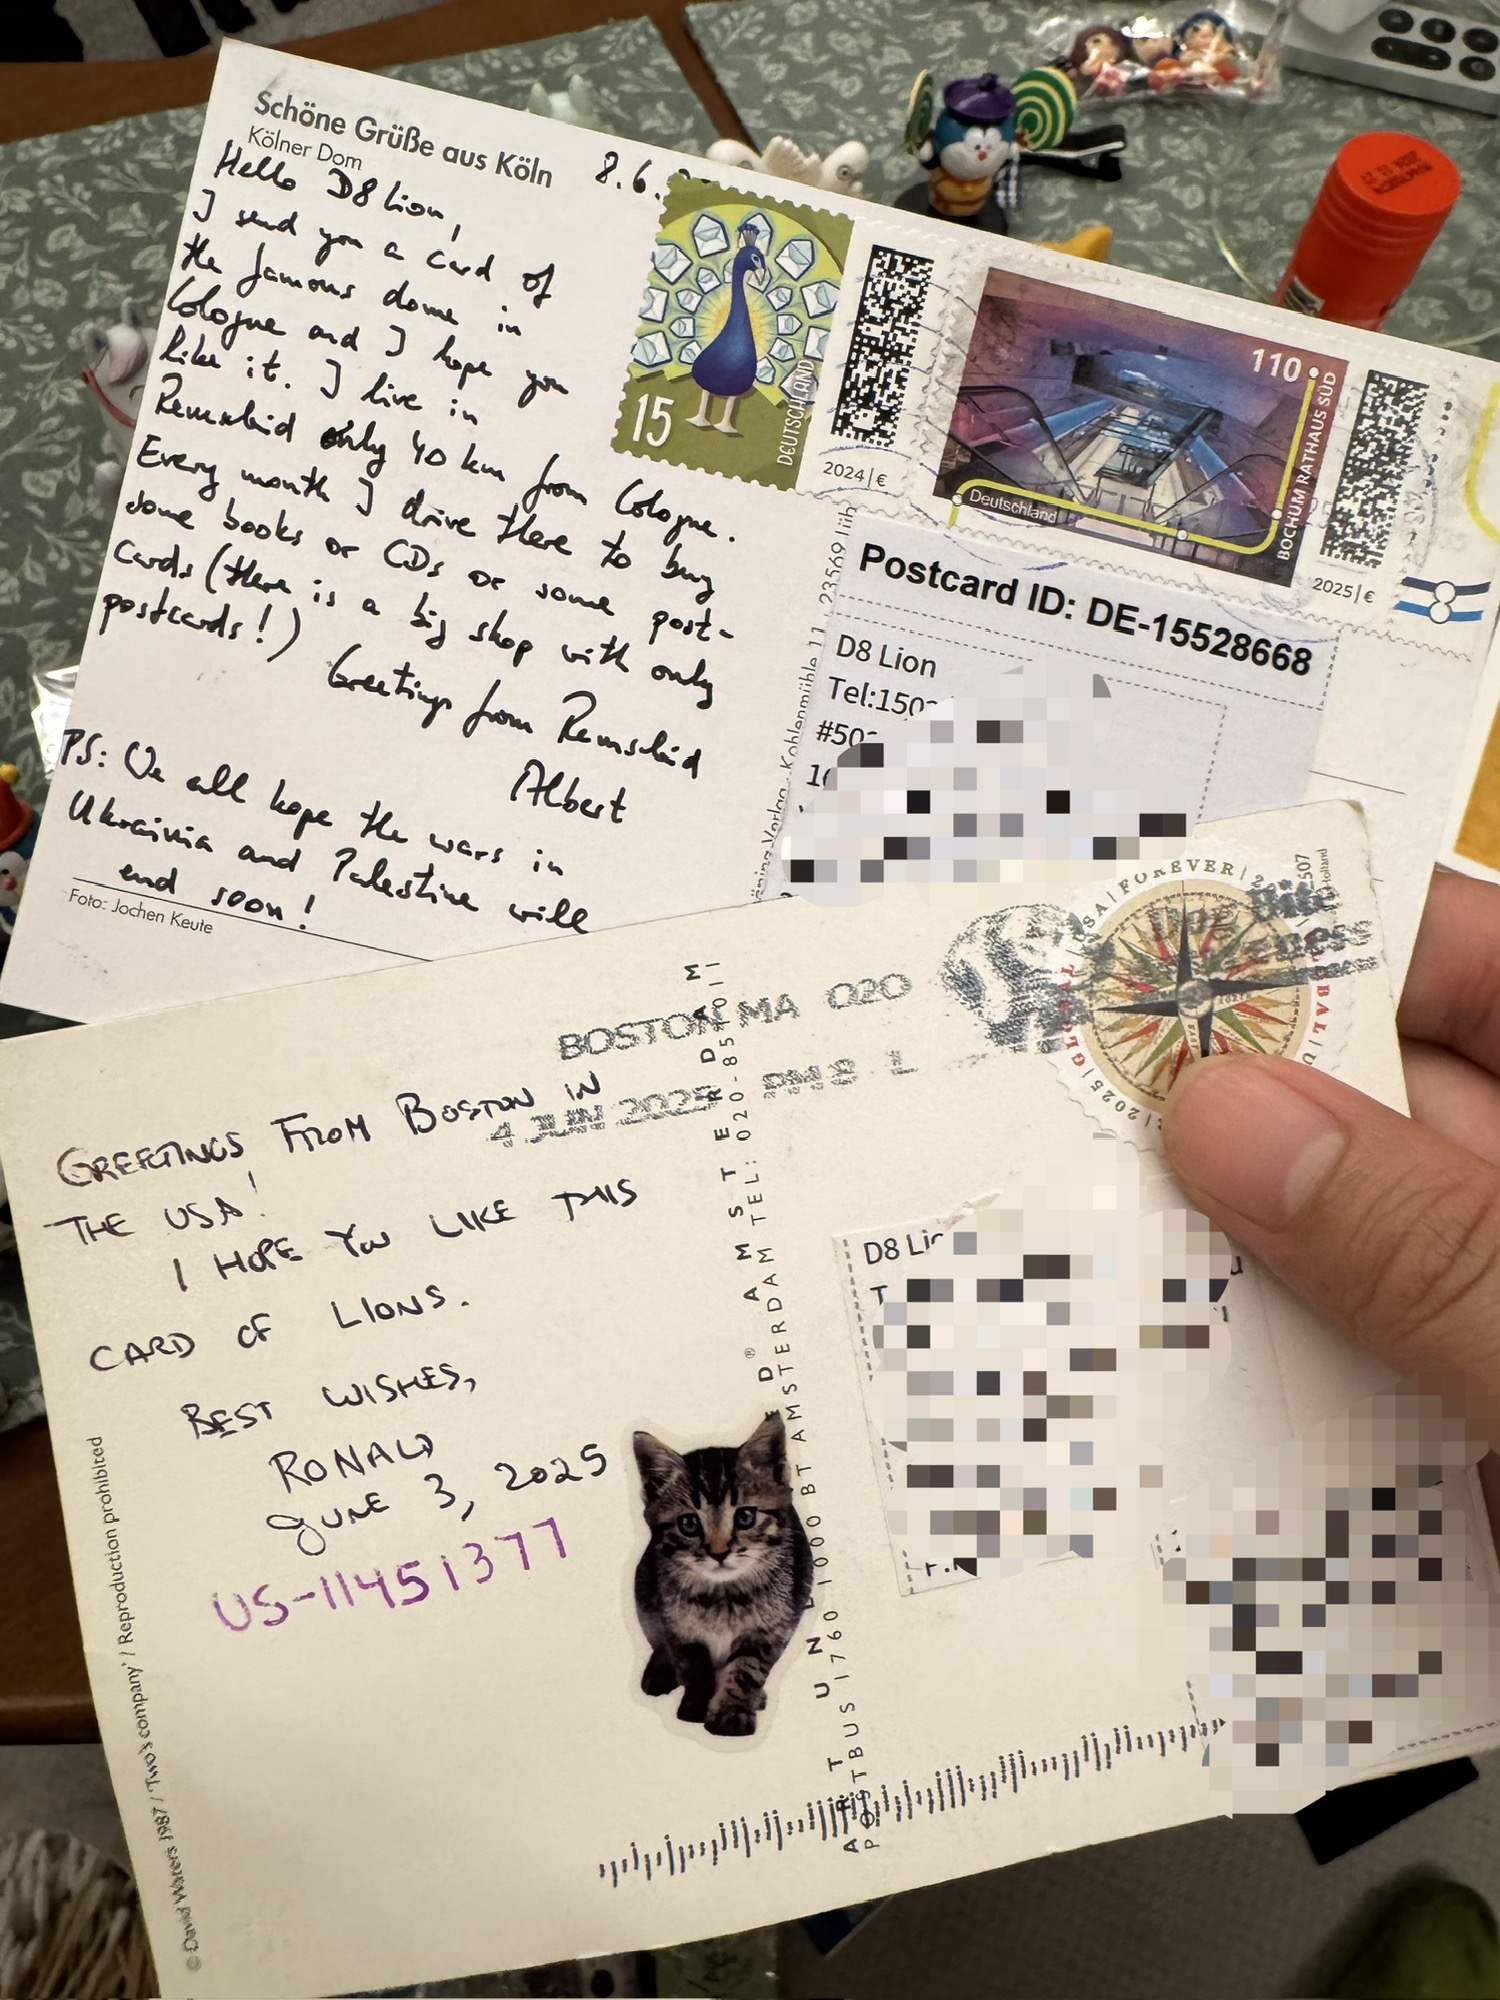 Schöne Grüße aus Köln
Kölner Dom
8.6.
Hello D8 Lion,
I send you a card of
the famous dome in
Cologne and I hope you
like it. I live in
Remscheid only 40 km from Cologne.
Every month I drive there to buy
some books or CDs or some post-
cards (there is a big shop with only
postcards!)
Greetings from Remscheid
Albert
PS: We all hope the wars in
Ukrainia and Palestine will
end soon!
Foto: Jochen Keute
15
DEUTSCHLAND
2024|€
110
BOCHUM RATHAUS SÜD
Deutschland
2025|€
Kohlenmühle 11, 23569 Lüb
Postcard ID: DE-15528668
D8 Lion
Tel:150
#50
1
BOSTON MA 020
4 JUN 2025 PM 8 L
USA|FOREVER|2
GLOBAL
2025|GLOBAL
507
Holland
GREETINGS FROM BOSTON IN
THE USA!
I HOPE YOU LIKE THIS
CARD OF LIONS.
BEST WISHES,
RONALD
JUNE 3, 2025
US-11451377
© David Waters 1987 / 'Two's company' / Reproduction prohibited
ART UNLIMITED® AMSTERDAM
POSTBUS 1760 1000 BT AMSTERDAM TEL: 020-85
D8 Li
T